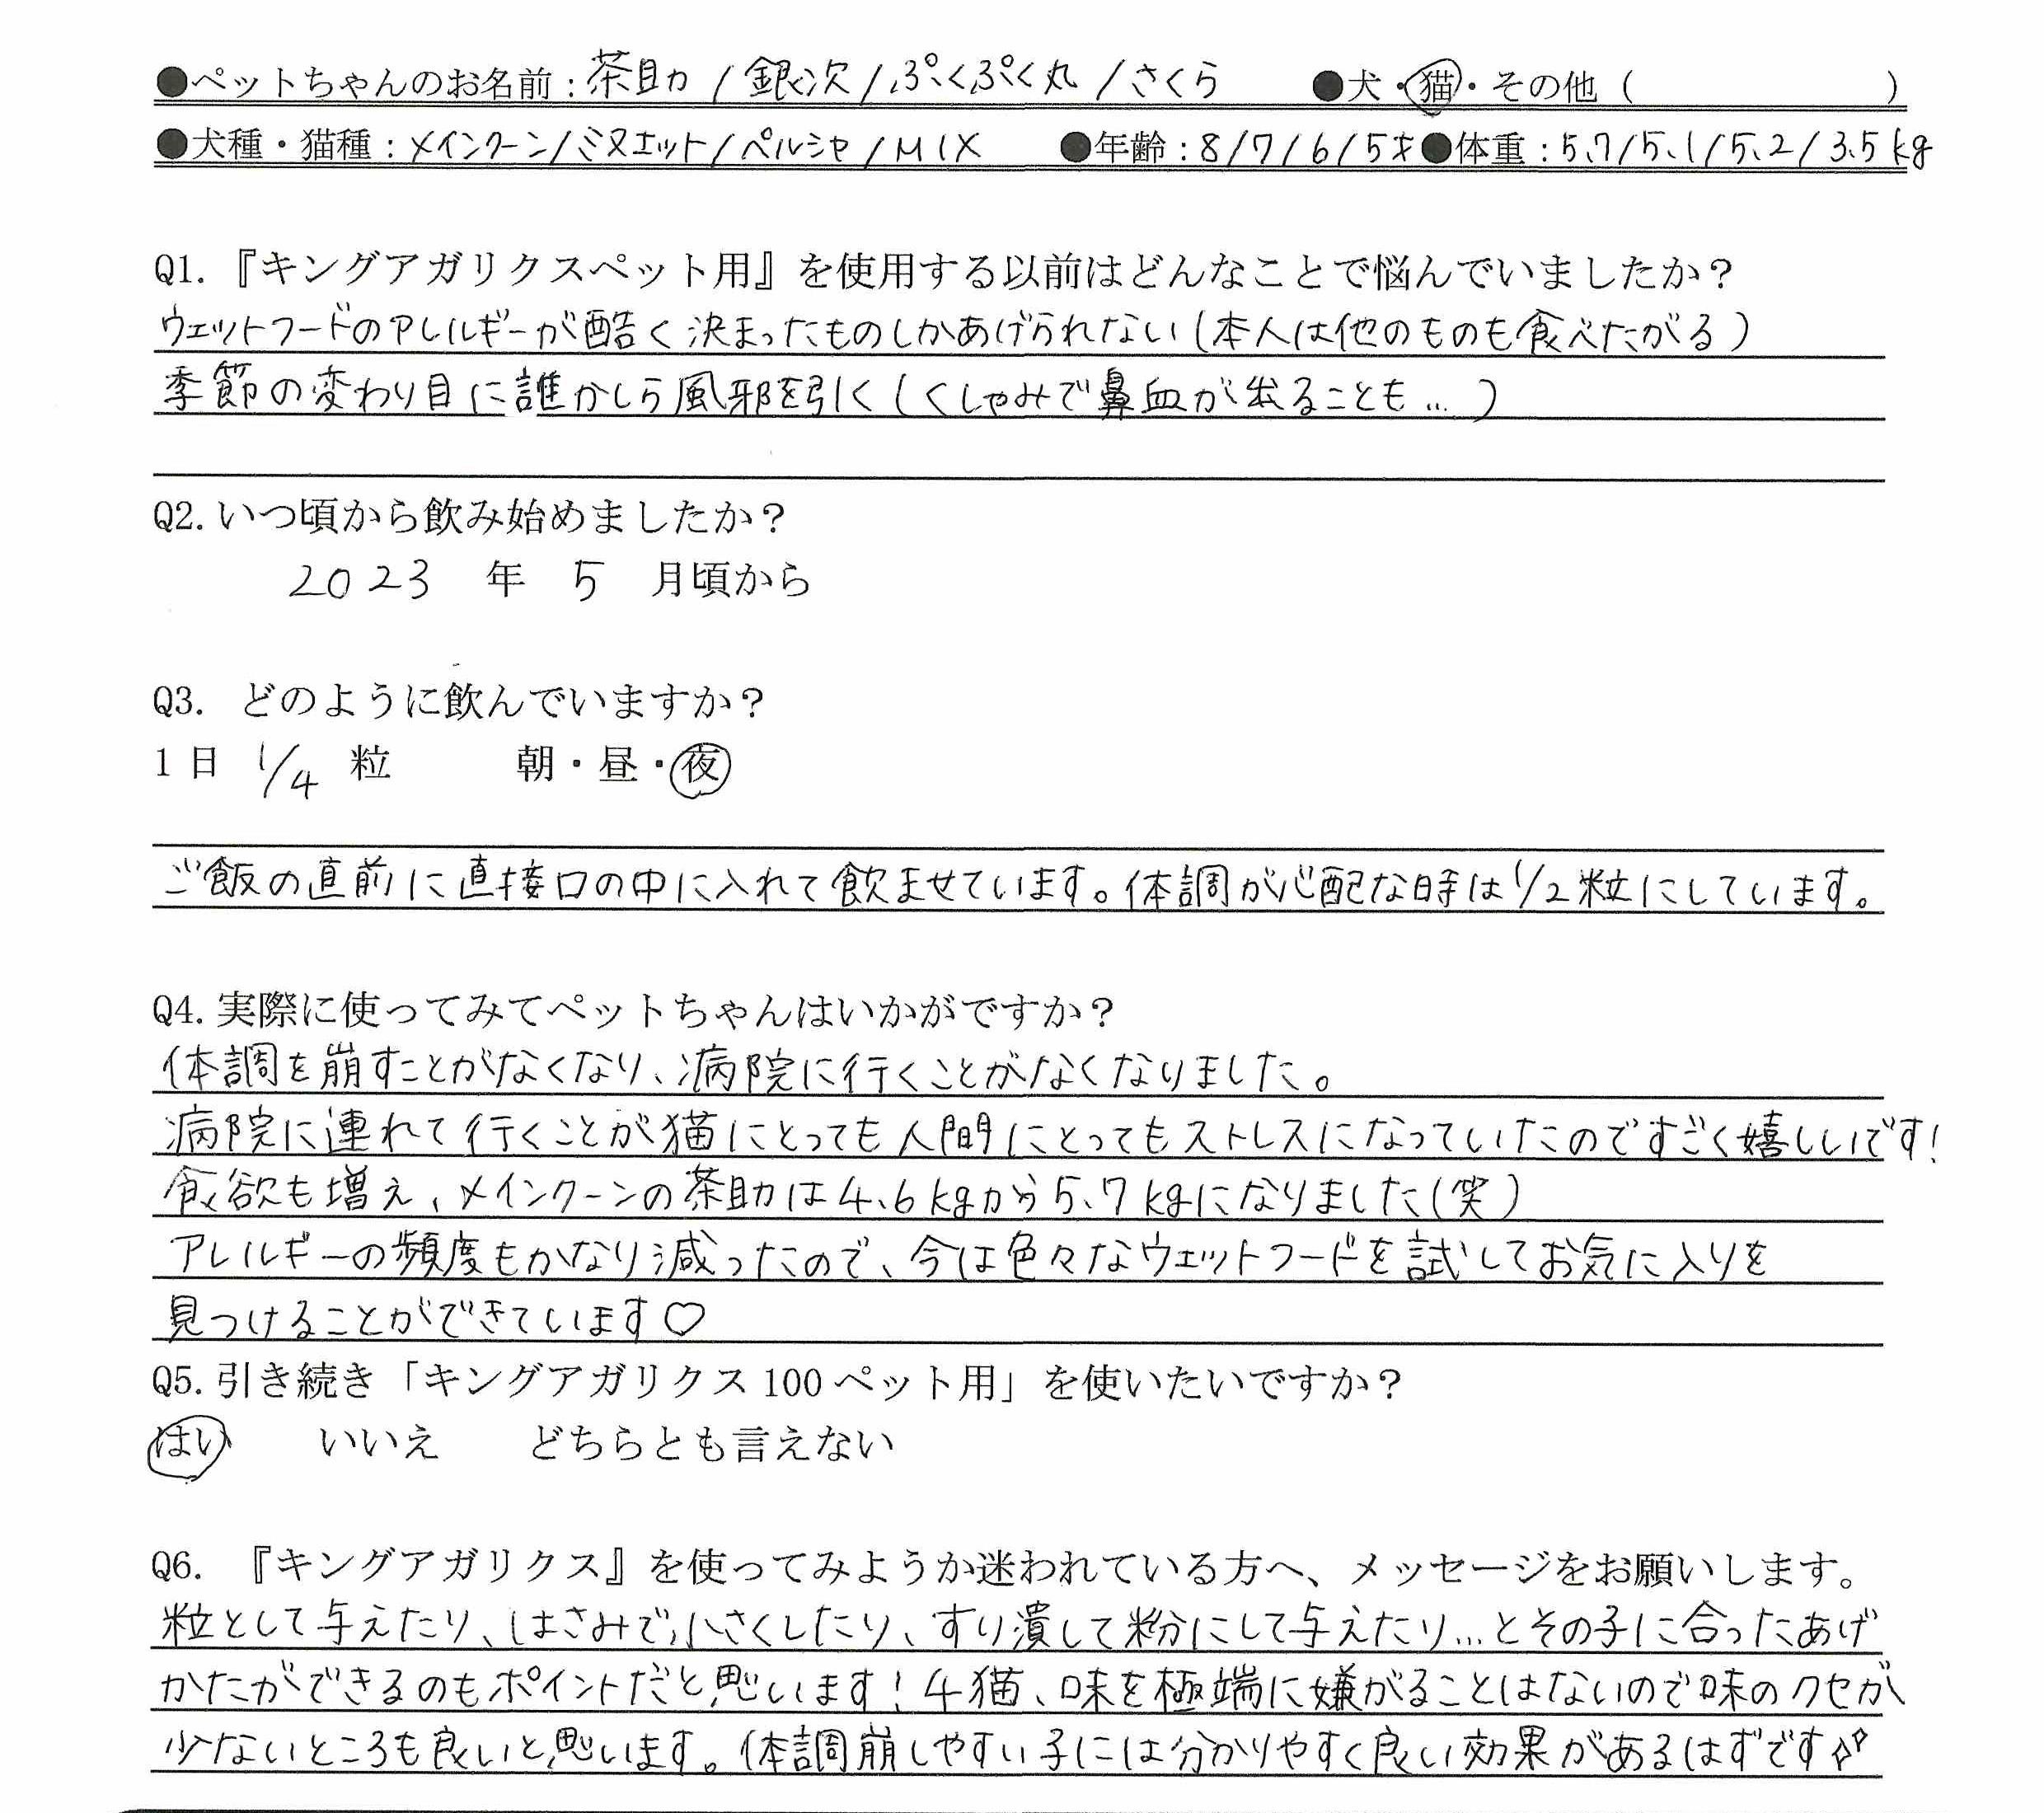 ●ペットちゃんのお名前：茶助/銀次/ぷくぷく丸/さくら ●犬・猫・その他（ ）
●犬種・猫種：メインクーン/ミヌエット/ペルシャ/MIX ●年齢：8/7/6/5才●体重：5.7/5.1/5.2/3.5kg
Q1.『キングアガリクスペット用』を使用する以前はどんなことで悩んでいましたか？
ウェットフードのアレルギーが酷く決まったものしかあげられない(本人は他のものも食べたがる)
季節の変わり目に誰かしら風邪を引く(くしゃみで鼻血が出ることも…)
Q2.いつ頃から飲み始めましたか？
2023 年 5 月頃から
Q3. どのように飲んでいますか？
1日 1/4 粒 朝・昼・夜
ご飯の直前に直接口の中に入れて飲ませています。体調が心配な時は1/2粒にしています。
Q4.実際に使ってみてペットちゃんはいかがですか？
体調を崩すことがなくなり、病院に行くことがなくなりました。
病院に連れて行くことが猫にとっても人間にとってもストレスになっていたのですごく嬉しいです!
食欲も増え、メインクーンの茶助は4.6kgから5.7kgになりました(笑)
アレルギーの頻度もかなり減ったので、今は色々なウェットフードを試してお気に入りを
見つけることができています♡
Q5.引き続き「キングアガリクス100ペット用」を使いたいですか？
はい いいえ どちらとも言えない
Q6. 『キングアガリクス』を使ってみようか迷われている方へ、メッセージをお願いします。
粒として与えたり、はさみで小さくしたり、すり潰して粉にして与えたり…とその子に合ったあげ
かたができるのもポイントだと思います!4猫、味を極端に嫌がることはないので味のクセが
少ないところも良いと思います。体調崩しやすい子には分かりやすく良い効果があるはずです✧✧